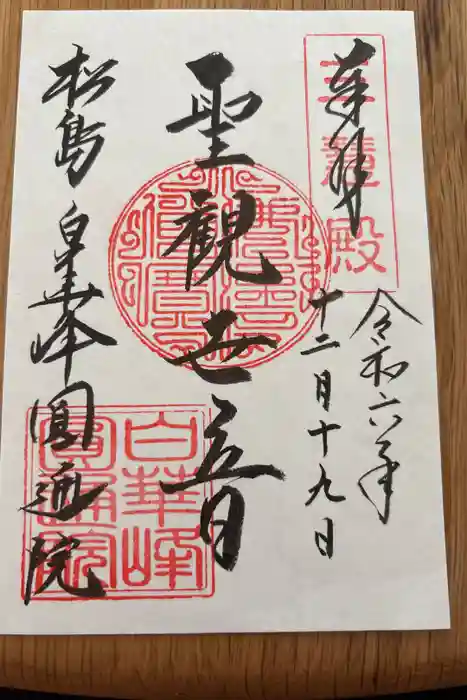 奉拝
三慧殿
令和六年
十二月十九日
聖観世音
松島 白華峰 圓通院
白華峰
圓通院